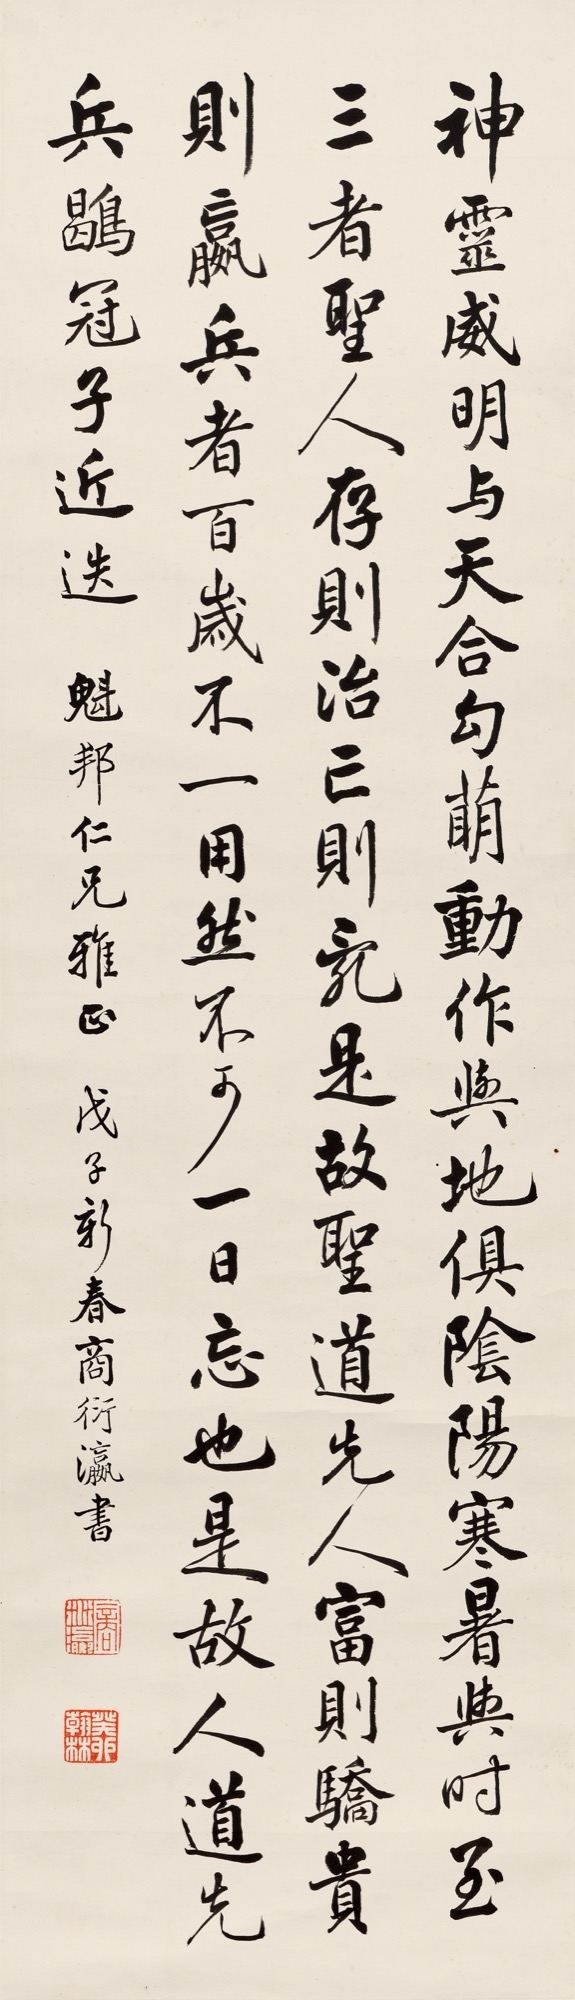 神靈威明与天合勾萌動作與地俱陰陽寒暑與时至
三者聖人存則治亡則乱是故聖道先人富則驕貴
則嬴兵者百歲不一用然不可一日忘也是故人道先
兵鶡冠子近迭 魁邦仁兄雅正 戊子新春商衍瀛書
商衍瀛
癸卯翰林